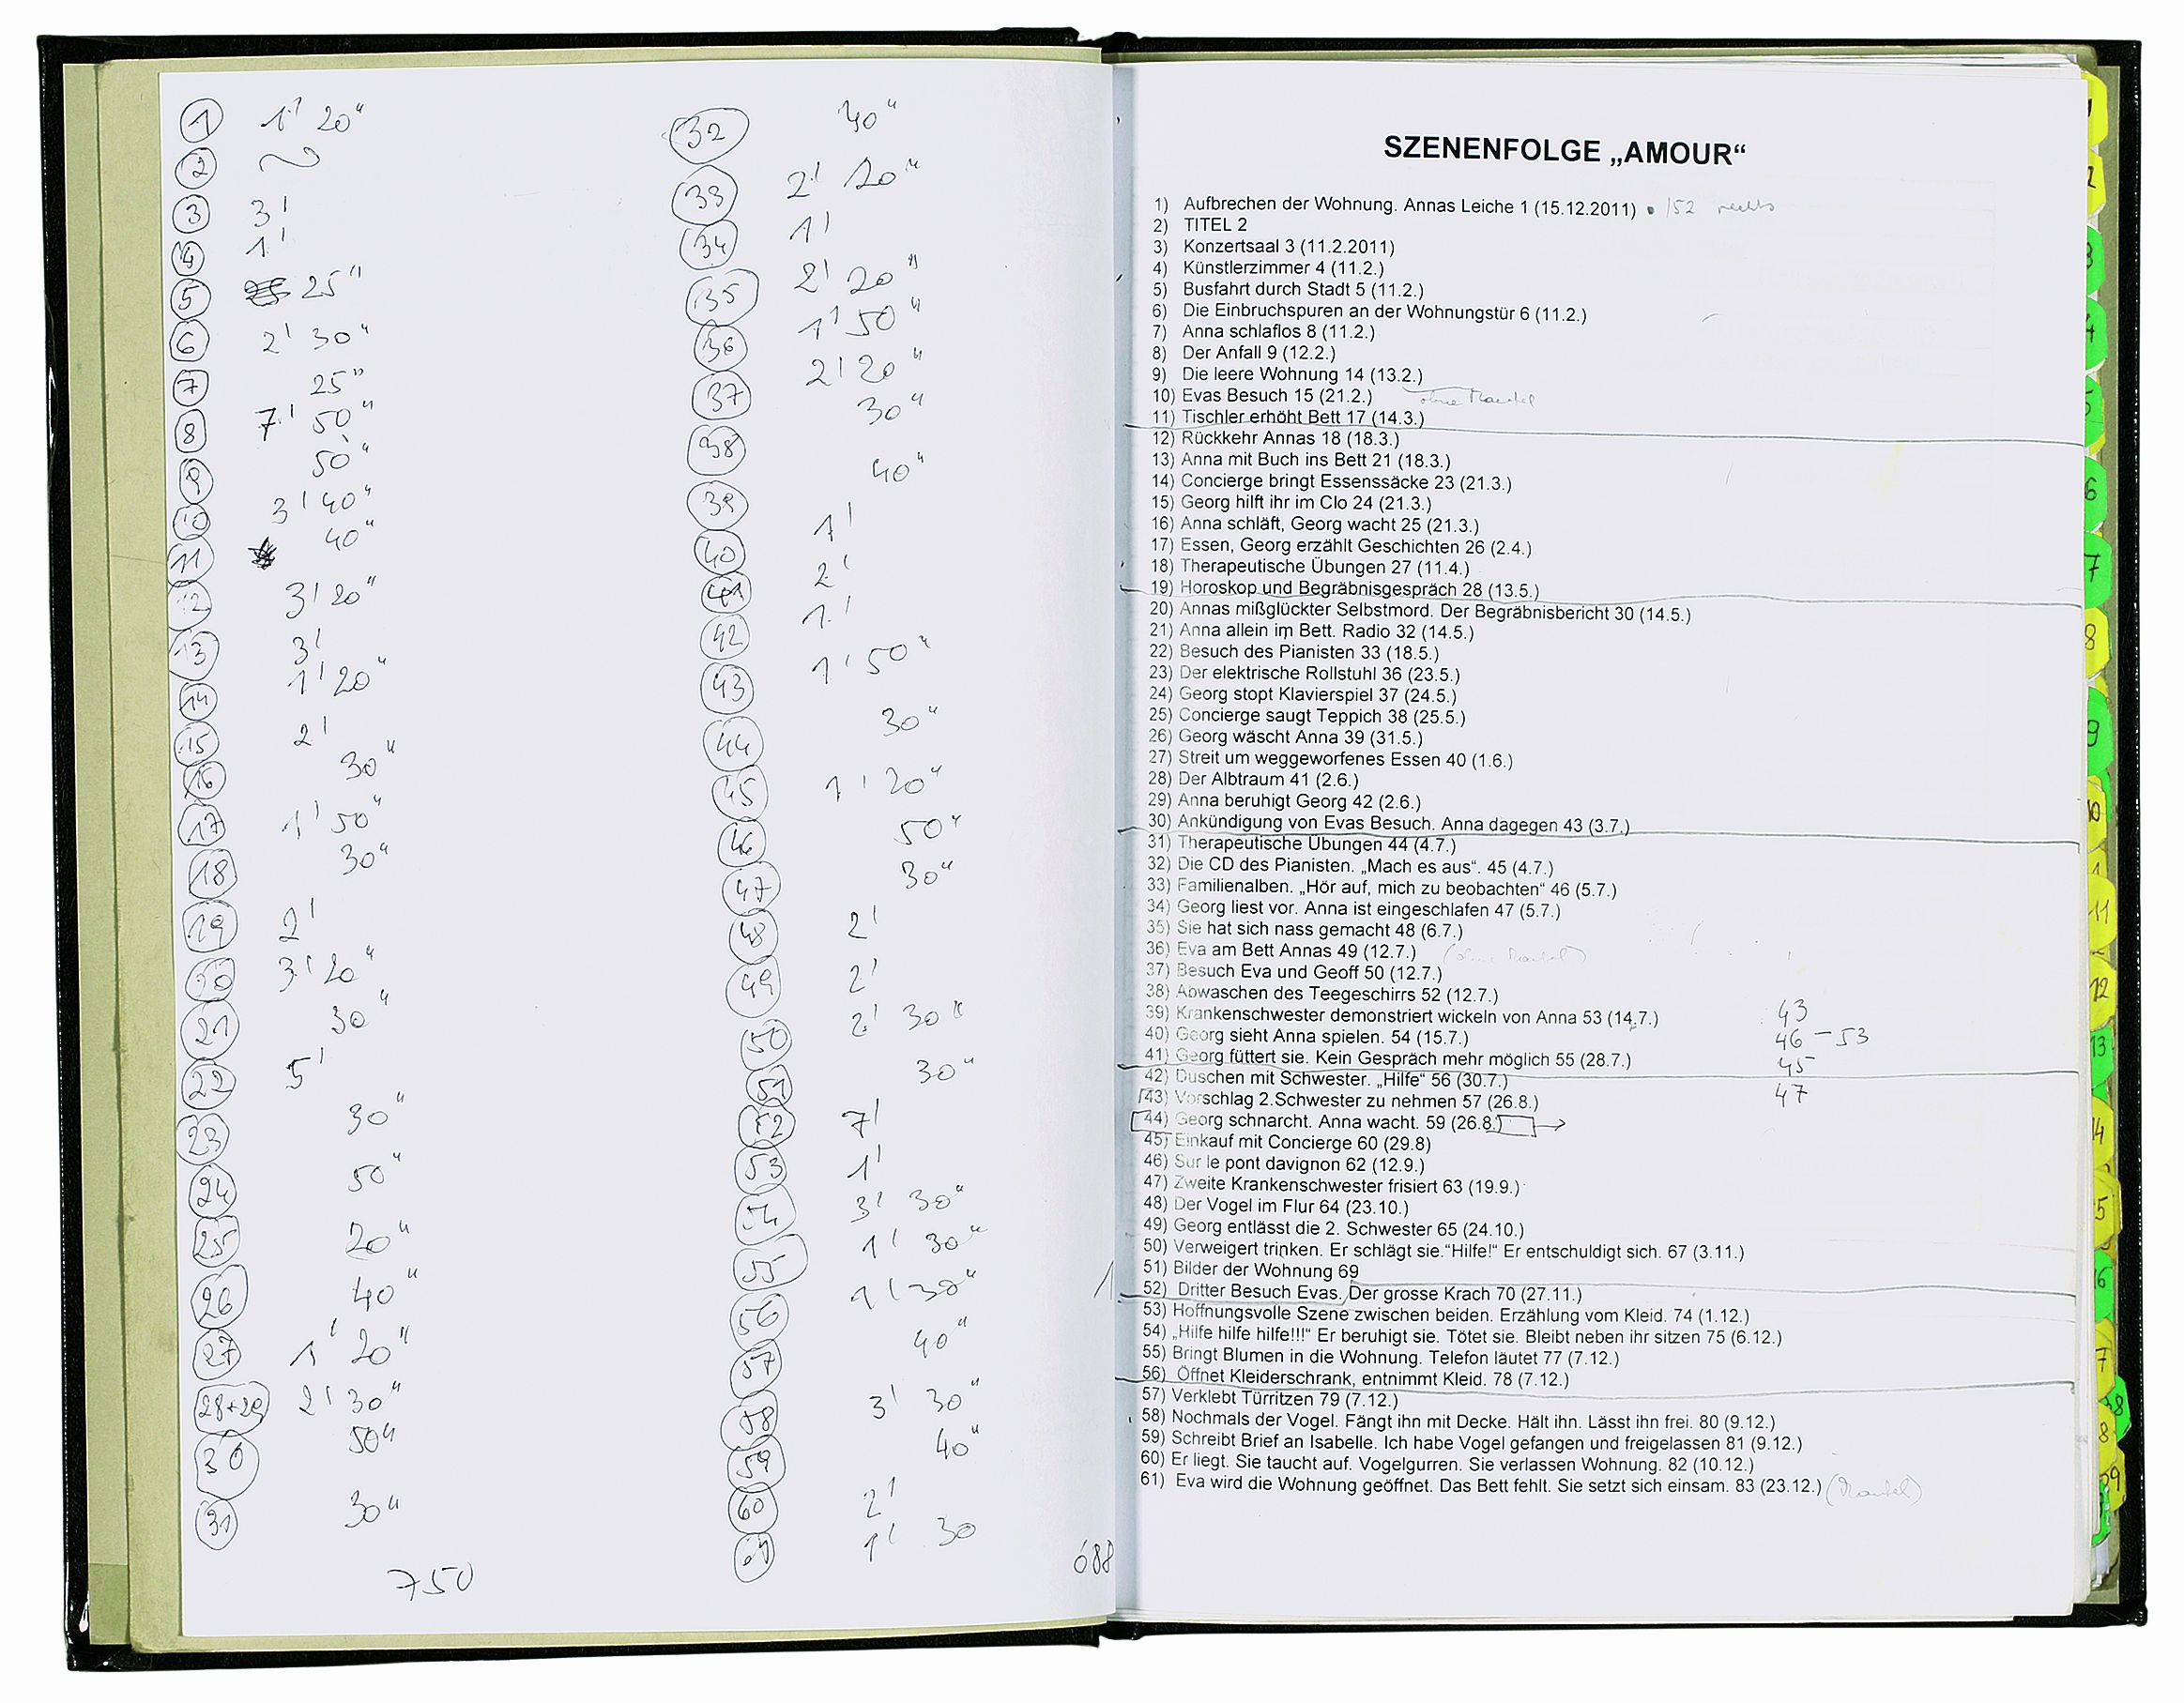 1 1' 20"
2
3 3'
4 1'
5 25"
6 2' 30"
7 25"
8 7' 50"
9 50"
10 3' 40"
11 40"
12 3' 20"
13 3'
14 1' 20"
15 2'
16 30"
17 1' 50"
18 30"
19 2'
20 3' 20"
21 30"
22 5'
23 30"
24 50"
25 20"
26 40"
27 1' 20"
28+29 2' 30"
30 50"
31 30"
750
32 40"
33 2' 20"
34 1'
35 2' 20"
36 1' 50"
37 2' 20"
38 30"
39 40"
40 1'
41 2'
42 1'
43 1' 50"
44 30"
45 1' 20"
46 50"
47 30"
48 2'
49 2'
50 2' 30"
51 30"
52 7'
53 1'
54 3' 30"
55 1' 30"
56 1' 30"
57 40"
58 3' 30"
59 40"
60 2'
61 1' 30
688
SZENENFOLGE „AMOUR“
1) Aufbrechen der Wohnung. Annas Leiche 1 (15.12.2011) 152 rechts
2) TITEL 2
3) Konzertsaal 3 (11.2.2011)
4) Künstlerzimmer 4 (11.2.)
5) Busfahrt durch Stadt 5 (11.2.)
6) Die Einbruchspuren an der Wohnungstür 6 (11.2.)
7) Anna schlaflos 8 (11.2.)
8) Der Anfall 9 (12.2.)
9) Die leere Wohnung 14 (13.2.)
10) Evas Besuch 15 (21.2.) ohne Mantel
11) Tischler erhöht Bett 17 (14.3.)
12) Rückkehr Annas 18 (18.3.)
13) Anna mit Buch ins Bett 21 (18.3.)
14) Concierge bringt Essenssäcke 23 (21.3.)
15) Georg hilft ihr im Clo 24 (21.3.)
16) Anna schläft, Georg wacht 25 (21.3.)
17) Essen, Georg erzählt Geschichten 26 (2.4.)
18) Therapeutische Übungen 27 (11.4.)
19) Horoskop und Begräbnisgespräch 28 (13.5.)
20) Annas mißglückter Selbstmord. Der Begräbnisbericht 30 (14.5.)
21) Anna allein im Bett. Radio 32 (14.5.)
22) Besuch des Pianisten 33 (18.5.)
23) Der elektrische Rollstuhl 36 (23.5.)
24) Georg stopt Klavierspiel 37 (24.5.)
25) Concierge saugt Teppich 38 (25.5.)
26) Georg wäscht Anna 39 (31.5.)
27) Streit um weggeworfenes Essen 40 (1.6.)
28) Der Albtraum 41 (2.6.)
29) Anna beruhigt Georg 42 (2.6.)
30) Ankündigung von Evas Besuch. Anna dagegen 43 (3.7.)
31) Therapeutische Übungen 44 (4.7.)
32) Die CD des Pianisten. „Mach es aus“. 45 (4.7.)
33) Familienalben. „Hör auf, mich zu beobachten“ 46 (5.7.)
34) Georg liest vor. Anna ist eingeschlafen 47 (5.7.)
35) Sie hat sich nass gemacht 48 (6.7.)
36) Eva am Bett Annas 49 (12.7.) (ohne Mantel)
37) Besuch Eva und Geoff 50 (12.7.)
38) Abwaschen des Teegeschirrs 52 (12.7.)
39) Krankenschwester demonstriert wickeln von Anna 53 (14.7.) 43
40) Georg sieht Anna spielen. 54 (15.7.) 46 – 53
41) Georg füttert sie. Kein Gespräch mehr möglich 55 (28.7.) 45
42) Duschen mit Schwester. „Hilfe“ 56 (30.7.)
43) Vorschlag 2.Schwester zu nehmen 57 (26.8.) 47
44) Georg schnarcht. Anna wacht. 59 (26.8.)
45) Einkauf mit Concierge 60 (29.8)
46) Sur le pont davignon 62 (12.9.)
47) Zweite Krankenschwester frisiert 63 (19.9.)
48) Der Vogel im Flur 64 (23.10.)
49) Georg entlässt die 2. Schwester 65 (24.10.)
50) Verweigert trinken. Er schlägt sie.“Hilfe!“ Er entschuldigt sich. 67 (3.11.)
51) Bilder der Wohnung 69
52) Dritter Besuch Evas. Der grosse Krach 70 (27.11.)
53) Hoffnungsvolle Szene zwischen beiden. Erzählung vom Kleid. 74 (1.12.)
54) „Hilfe hilfe hilfe!!!“ Er beruhigt sie. Tötet sie. Bleibt neben ihr sitzen 75 (6.12.)
55) Bringt Blumen in die Wohnung. Telefon läutet 77 (7.12.)
56) Öffnet Kleiderschrank, entnimmt Kleid. 78 (7.12.)
57) Verklebt Türritzen 79 (7.12.)
58) Nochmals der Vogel. Fängt ihn mit Decke. Hält ihn. Lässt ihn frei. 80 (9.12.)
59) Schreibt Brief an Isabelle. Ich habe Vogel gefangen und freigelassen 81 (9.12.)
60) Er liegt. Sie taucht auf. Vogelgurren. Sie verlassen Wohnung. 82 (10.12.)
61) Eva wird die Wohnung geöffnet. Das Bett fehlt. Sie setzt sich einsam. 83 (23.12.) (Mantel)
6
7
8
9
10
11
12
13